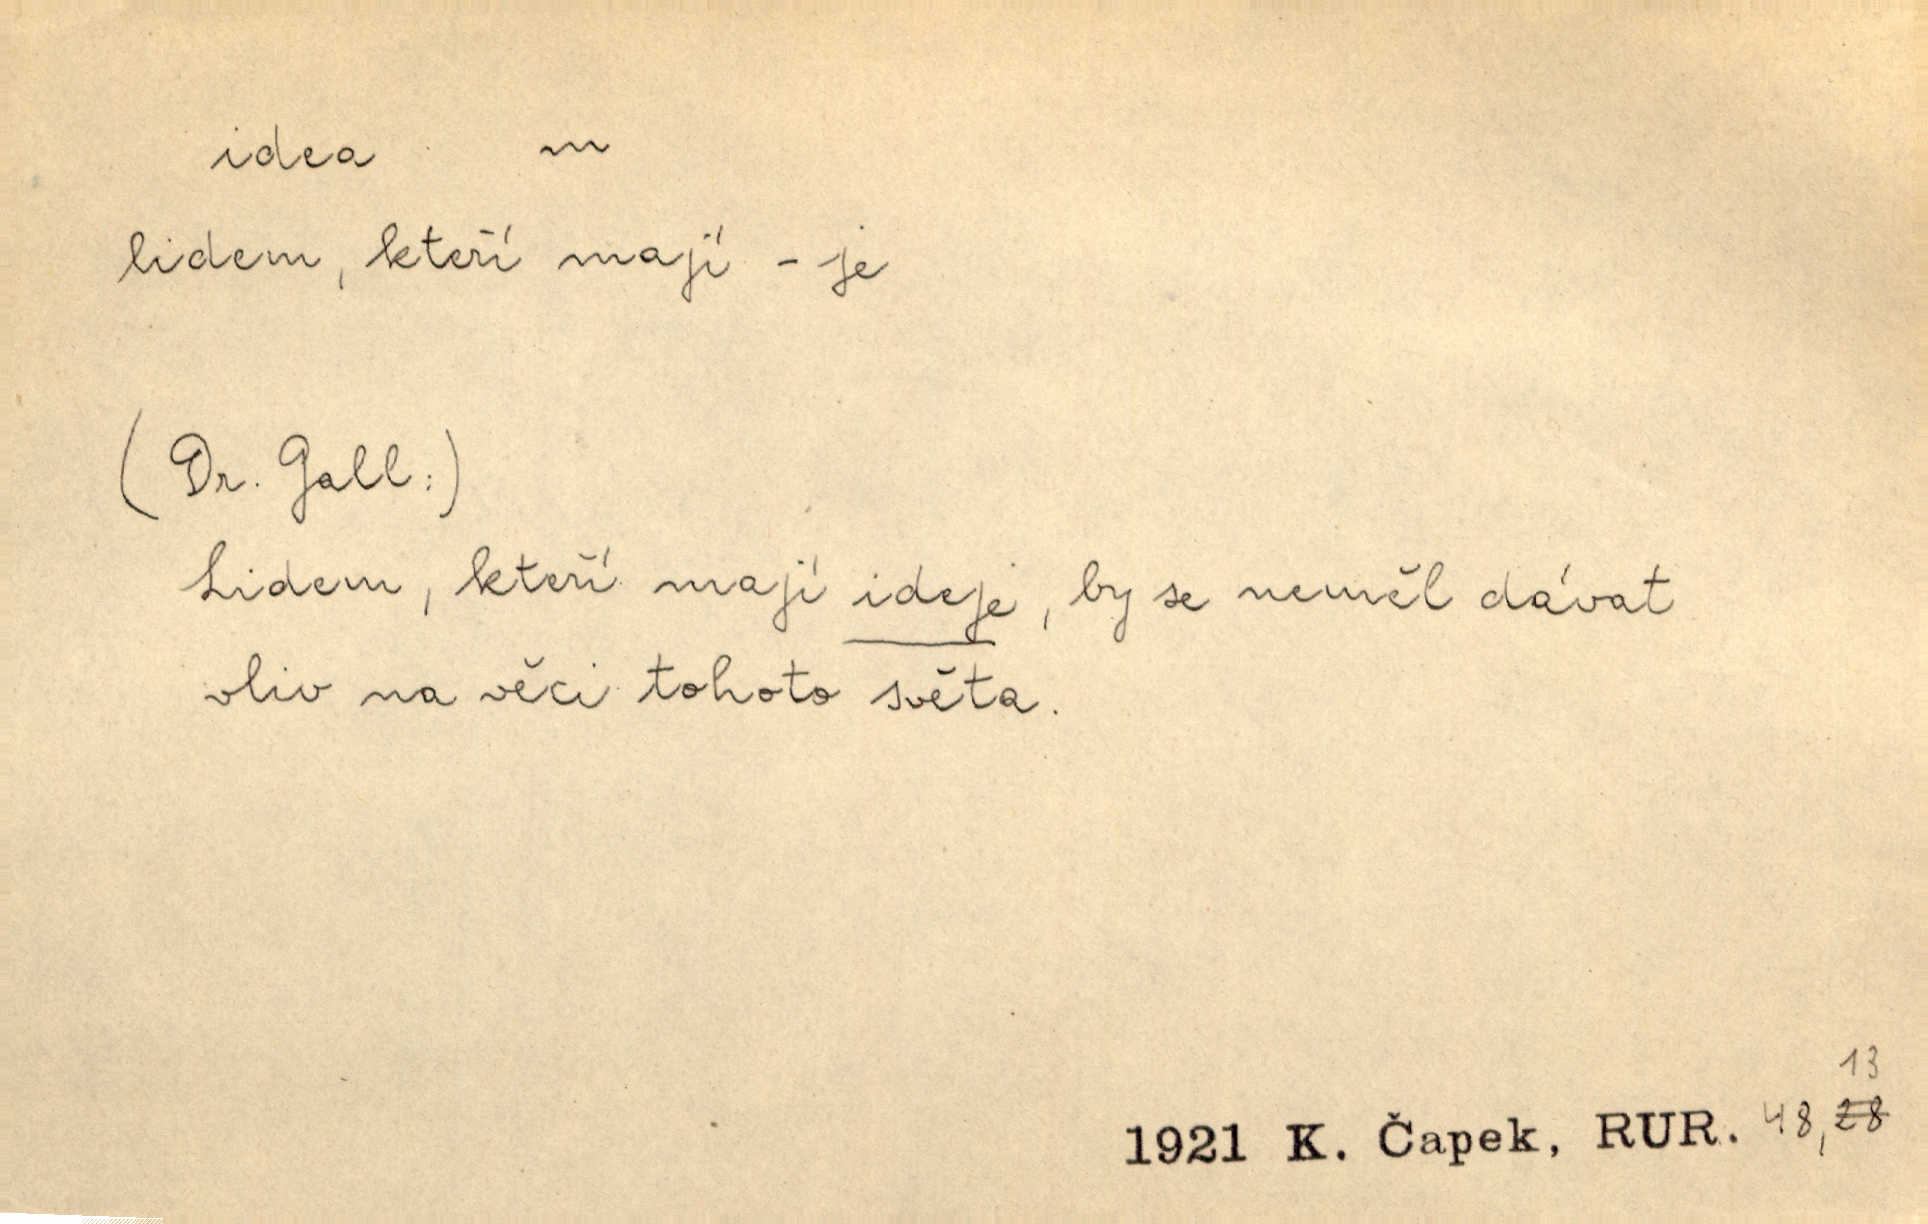 idea m
lidem, kteří mají - je
(Dr. Gall:)
Lidem, kteří mají ideje, by se neměl dávat
vliv na věci tohoto světa.
13
1921 K. Čapek, RUR. 48, 28